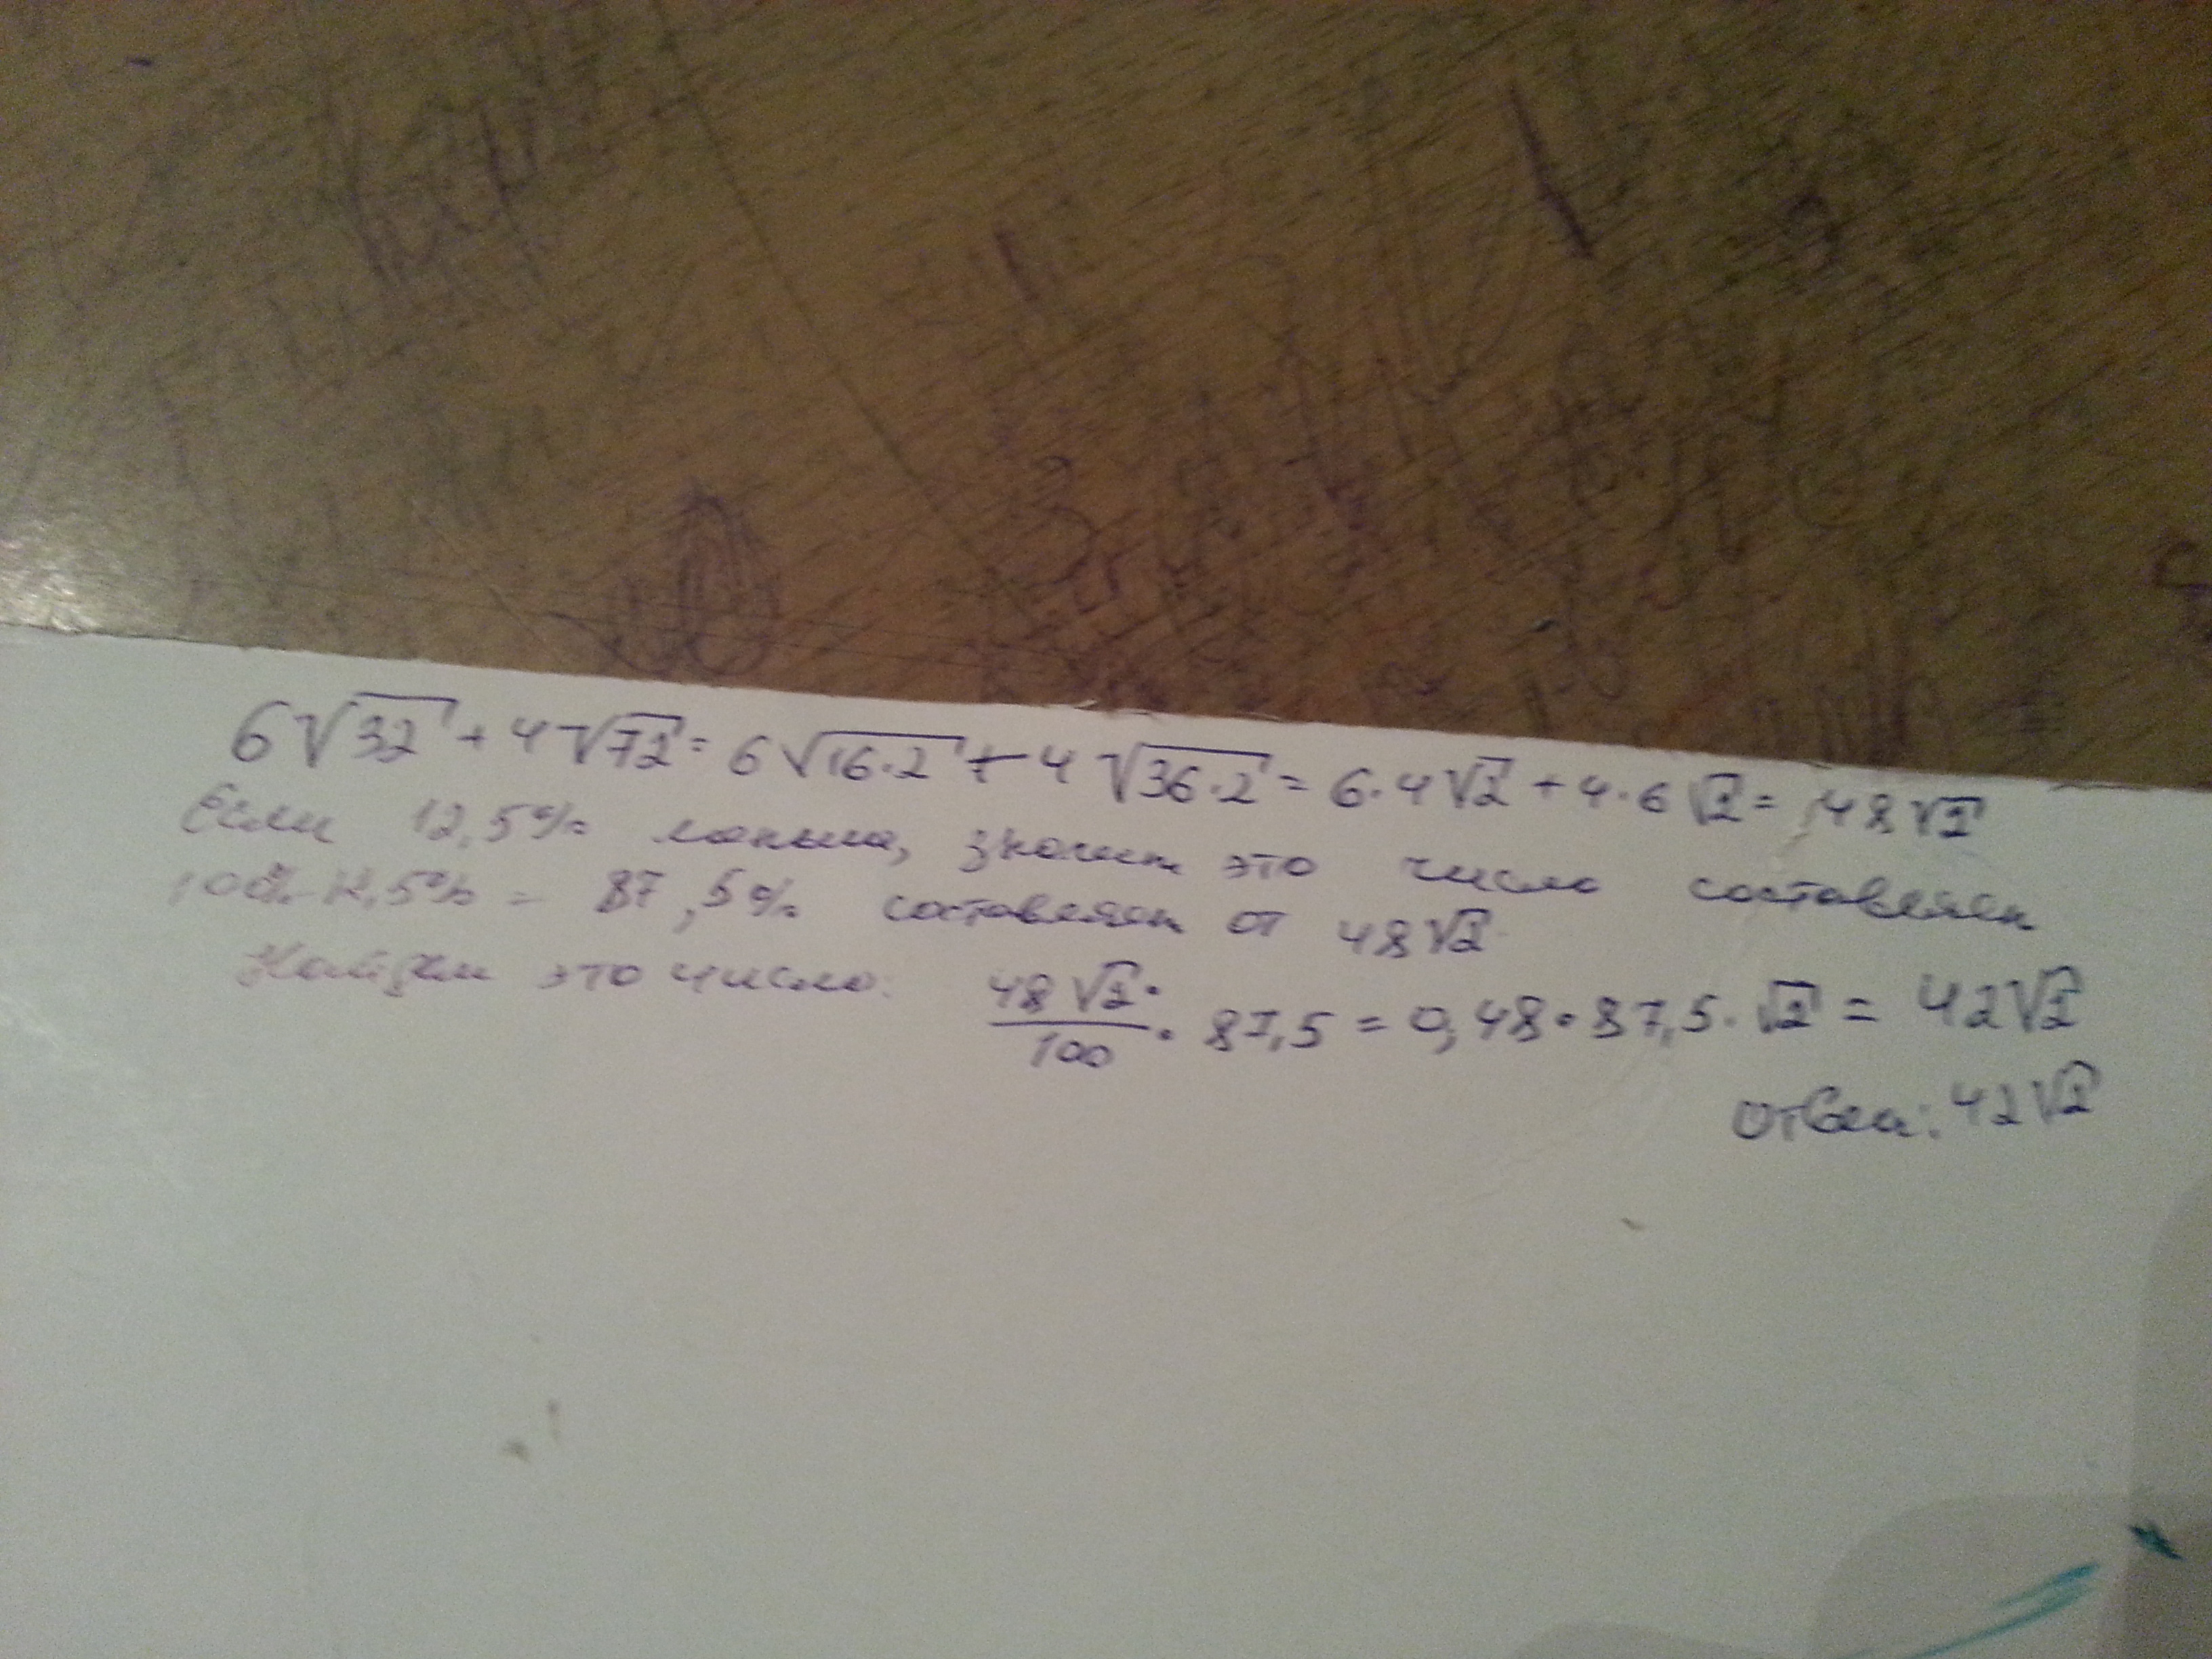 6√32 + 4√72 = 6√16·2 + 4√36·2 = 6·4√2 + 4·6√2 = 48√2
Если 12,5% меньше, значит это число составляет
100%-12,5% = 87,5% составляет от 48√2
Найдем это число: 48√2· / 100 · 87,5 = 0,48·87,5·√2 = 42√2
Ответ: 42√2